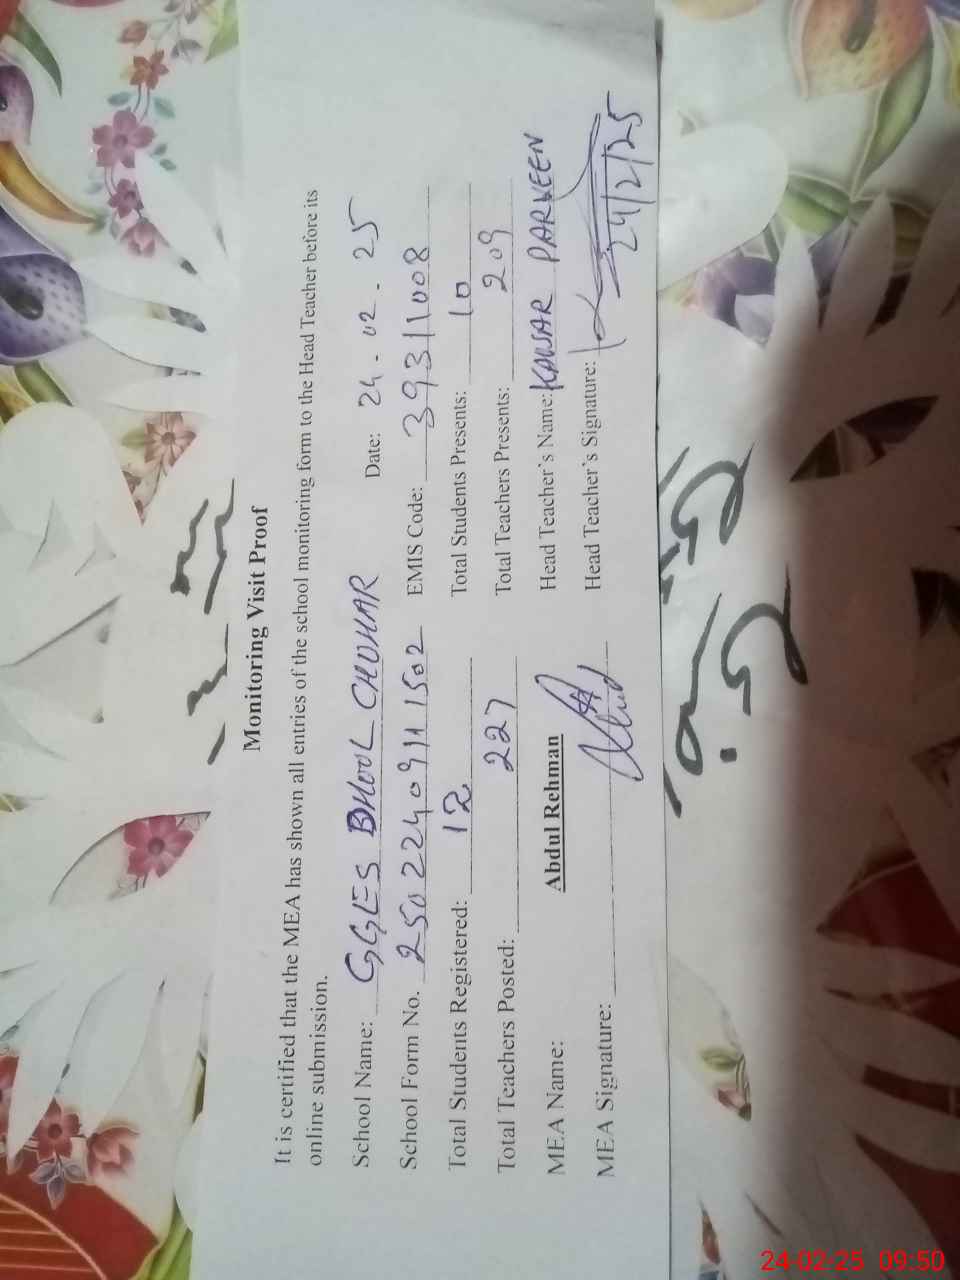 Monitoring Visit Proof
It is certified that the MEA has shown all entries of the school monitoring form to the Head Teacher before its
online submission.
School Name: GGLES BHOOL CHOHAR Date: 24-02-25
School Form No. 2502240911502 EMIS Code: 39311008
Total Students Registered: 12 Total Students Presents: 10
Total Teachers Posted: 227 Total Teachers Presents: 209
MEA Name: Abdul Rehman Head Teacher's Name: KAUSAR PARVEEN
MEA Signature: Head Teacher's Signature:
24/2/25
24-02-25 09:50